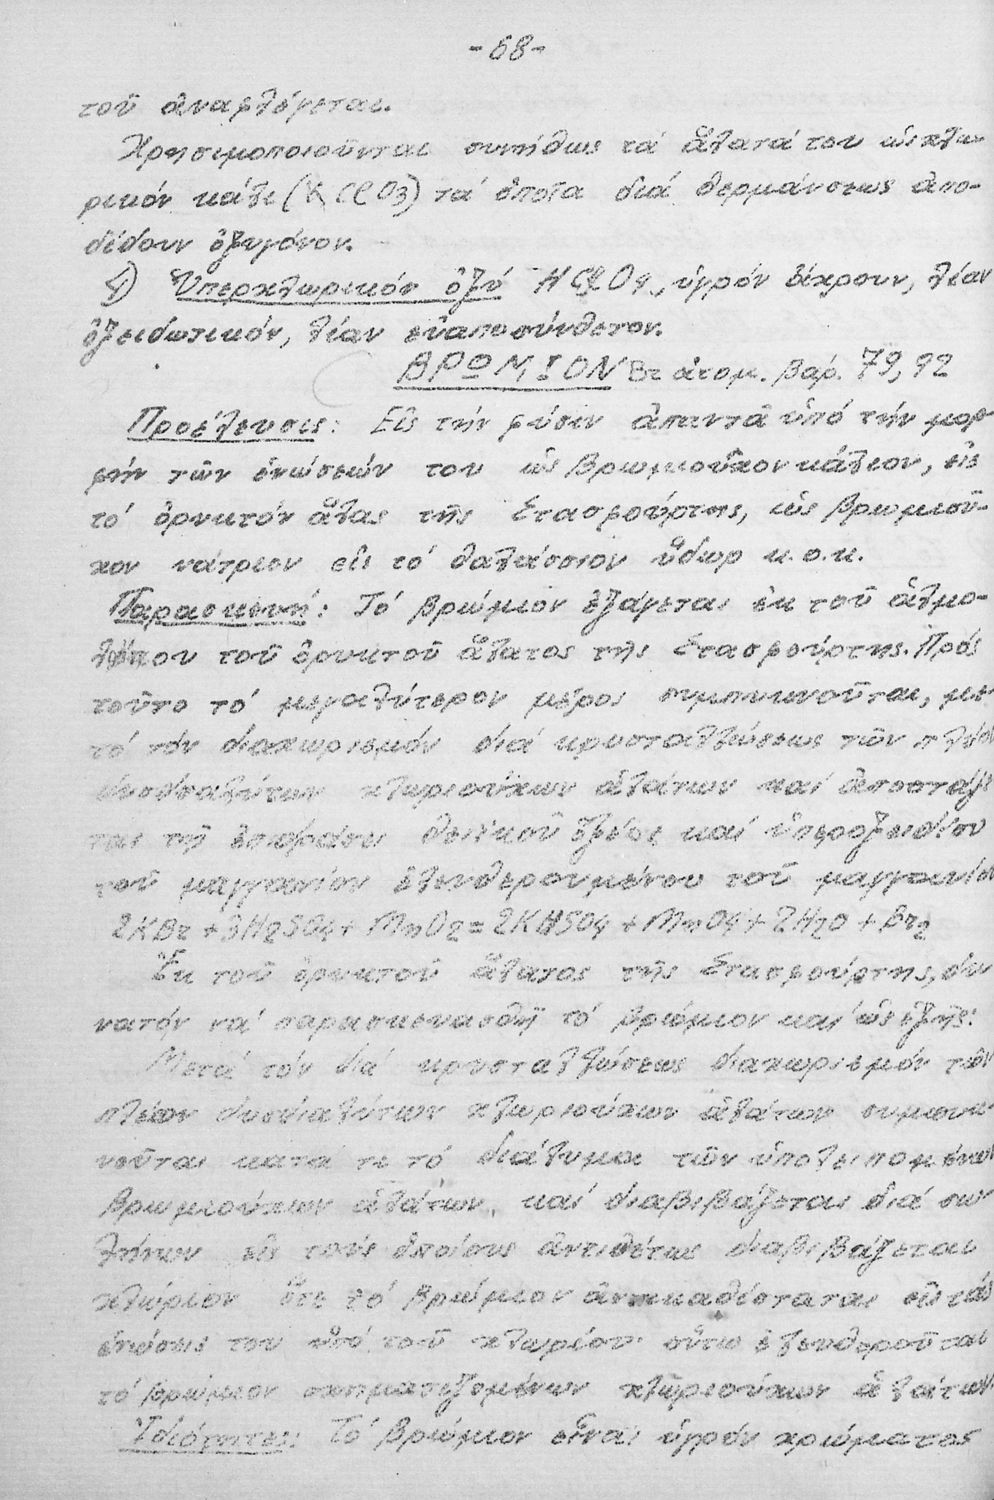 -68-
τοῦ ἀναφλέγεται.
Χρησιμοποιοῦνται συνήθως τά ἅλατά του ὡς χλω-
ρικόν κάλι (KClO3) τά ὁποῖα διά θερμάνσεως ἀπο-
δίδουν ὀξυγόνον.
4) Ὑπερχλωρικόν ὀξύ HClO4, ὑγρόν ἄχρουν, λίαν
ὀξειδωτικόν, λίαν εὐαποσύνθετον.
ΒΡΩΜΙΟΝ Br ἀτομ. βάρ. 79,92
Προέλευσις: Εἰς τήν φύσιν ἀπαντᾶ ὑπό τήν μορ-
φήν τῶν ἑνώσεών του ὡς βρωμιοῦχον κάλιον, εἰς
τό ὀρυκτόν ἅλας τῆς Στασφούρτης, ὡς βρωμιοῦ-
χον νάτριον εἰς τό θαλάσσιον ὕδωρ κ.ο.κ.
Παρασκευή: Τό βρώμιον ἐξάγεται ἐκ τοῦ ἁλμο-
λοίπου τοῦ ὀρυκτοῦ ἅλατος τῆς Στασφούρτης. Πρός
τοῦτο τό μεγαλύτερον μέρος συμπυκνοῦται, με-
τά τόν διαχωρισμόν διά κρυσταλλώσεως τῶν πλέον
δυσδιαλύτων χλωριούχων ἁλάτων καί ἀποστάζε
ται τῇ ἐπιδράσει θειϊκοῦ ὀξέος καί ὑπεροξειδίου
τοῦ μαγγανίου ἐλευθερουμένου τοῦ μαγγανίου
2KBr + 3H2SO4 + MnO2 = 2KHSO4 + MnO4 + 2H2O + Br2
Ἐκ τοῦ ὀρυκτοῦ ἅλατος τῆς Στασφούρτης, δυ
νατόν νά παρασκευασθῇ τό βρώμιον καί ὡς ἑξῆς:
Μετά τόν διά κρυσταλλώσεως διαχωρισμόν τῶν
πλέον δυσδιαλύτων χλωριούχων ἁλάτων συμπυκ
νοῦται κατά τι τό διάλυμα τῶν ὑπολειπομένων
βρωμιούχων ἁλάτων, καί διαβιβάζεται διά σω
λήνων εἰς τούς ὁποίους ἀντιθέτως διαβιβάζεται
χλώριον ὅτε τό βρώμιον ἀντικαθίσταται εἰς τάς
ἑνώσεις του ὑπό τοῦ χλωρίου· οὕτω ἐλευθεροῦται
τό βρώμιον σχηματιζομένων χλωριούχων ἁλάτων.
Ἰδιότητες: Τό βρώμιον εἶναι ὑγρόν χρώματος